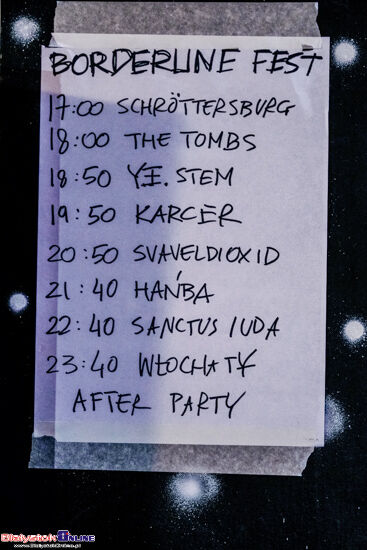 BORDERLINE FEST
17:00 SCHRÖTTERSBURG
18:00 THE TOMBS
18:50 STEM
19:50 KARCER
20:50 SVAVELDIOXID
21:40 HAŃBA
22:40 SANCTUS IUDA
23:40 WŁOCHATY
AFTER PARTY
Białystok ONLINE
www.BialystokOnline.pl